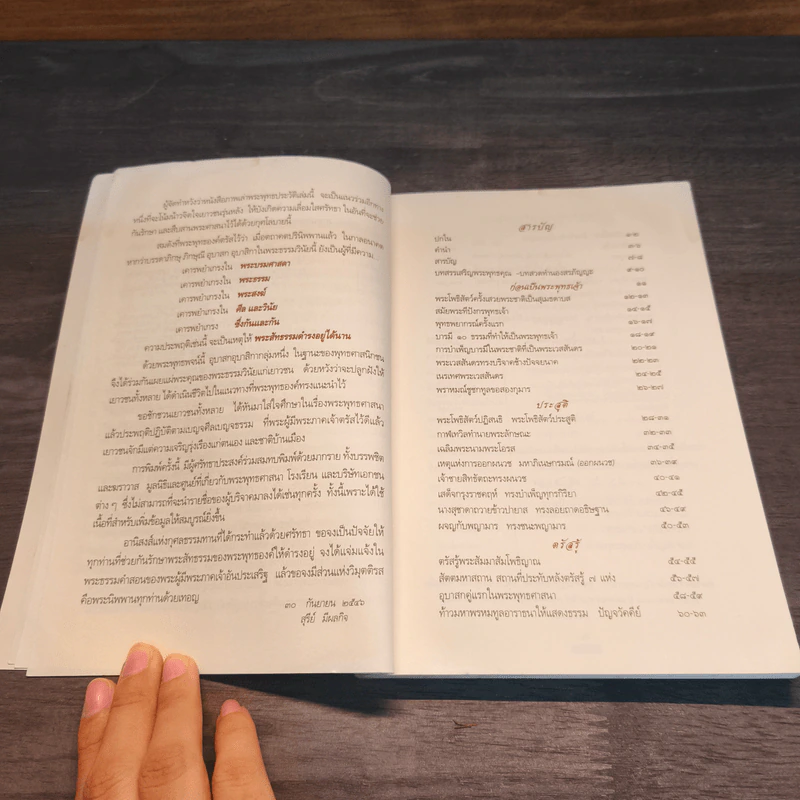 ผู้จัดทำหวังว่าหนังสือภาพเล่าพระพุทธประวัติเล่มนี้ จะเป็นแนวร่วมอีกทาง
หนึ่งที่จะโน้มน้าวจิตใจเยาวชนรุ่นหลัง ให้บังเกิดความเลื่อมใสศรัทธา ในอันที่จะช่วย
กันรักษา และสืบสานพระศาสนาไว้ได้ด้วยกุศโลบายนี้
สมดังที่พระพุทธองค์ตรัสไว้ว่า เมื่อตถาคตปรินิพพานแล้ว ในกาลอนาคต
หากว่าบรรดาภิกษุ ภิกษุณี อุบาสก อุบาสิกาในพระธรรมวินัยนี้ ยังเป็นผู้ที่มีความ
เคารพยำเกรงใน พระบรมศาสดา
เคารพยำเกรงใน พระธรรม
เคารพยำเกรงใน พระสงฆ์
เคารพยำเกรงใน ศีล และวินัย
เคารพยำเกรง ซึ่งกันและกัน
ความประพฤติเช่นนี้ จะเป็นเหตุให้ พระสัทธรรมดำรงอยู่ได้นาน
ด้วยพระพุทธพจน์นี้ อุบาสกอุบาสิกากลุ่มหนึ่ง ในฐานะของพุทธศาสนิกชน
จึงได้ร่วมกันเผยแผ่พระคุณของพระธรรมวินัยแก่เยาวชน ด้วยหวังว่าจะปลูกฝังให้
เยาวชนทั้งหลาย ได้ดำเนินชีวิตไปในแนวทางที่พระพุทธองค์ทรงแนะนำไว้
ขอชักชวนเยาวชนทั้งหลาย ได้หันมาใส่ใจศึกษาในเรื่องพระพุทธศาสนา
แล้วประพฤติปฏิบัติตามเบญจศีลเบญจธรรม ที่พระผู้มีพระภาคเจ้าตรัสไว้ดีแล้ว
เยาวชนจักมีแต่ความเจริญรุ่งเรืองแก่ตนเอง และชาติบ้านเมือง
การพิมพ์ครั้งนี้ มีผู้ศรัทธาประสงค์ร่วมสมทบพิมพ์ด้วยมากราย ทั้งบรรพชิต
และฆราวาส มูลนิธิและศูนย์ที่เกี่ยวกับพระพุทธศาสนา โรงเรียน และบริษัทเอกชน
ต่าง ๆ ซึ่งไม่สามารถที่จะนำรายชื่อของผู้บริจาคมาลงได้เช่นทุกครั้ง ทั้งนี้เพราะได้ใช้
เนื้อที่สำหรับเพิ่มข้อมูลให้สมบูรณ์ยิ่งขึ้น
อานิสงส์แห่งกุศลธรรมทานที่ได้กระทำแล้วด้วยศรัทธา ขอจงเป็นปัจจัยให้
ทุกท่านที่ช่วยกันรักษาพระสัทธรรมของพระพุทธองค์ให้ดำรงอยู่ จงได้แจ่มแจ้งใน
พระธรรมคำสอนของพระผู้มีพระภาคเจ้าอันประเสริฐ แล้วขอจงมีส่วนแห่งวิมุตติรส
คือพระนิพพานทุกท่านด้วยเทอญ
๓๐ กันยายน ๒๕๔๖
สุรีย์ มีผลกิจ
สารบัญ
ปกใน ๑-๒
คำนำ ๓-๖
สารบัญ ๗-๘
บทสรรเสริญพระพุทธคุณ -บทสวดทำนองสรภัญญะ ๙-๑๐
ก่อนเป็นพระพุทธเจ้า ๑๑
พระโพธิสัตว์ครั้งเสวยพระชาติเป็นสุเมธดาบส ๑๒-๑๓
สมัยพระทีปังกรพุทธเจ้า ๑๔-๑๕
พุทธพยากรณ์ครั้งแรก ๑๖-๑๗
บารมี ๑๐ ธรรมที่ทำให้เป็นพระพุทธเจ้า ๑๘-๑๙
การบำเพ็ญบารมีในพระชาติที่เป็นพระเวสสันดร ๒๐-๒๑
พระเวสสันดรทรงบริจาคช้างปัจจัยนาค ๒๒-๒๓
เนรเทศพระเวสสันดร ๒๔-๒๕
พราหมณ์ชูชกทูลขอสองกุมาร ๒๖-๒๗
ประสูติ
พระโพธิสัตว์ปฏิสนธิ พระโพธิสัตว์ประสูติ ๒๘-๓๑
กาฬเทวิลทำนายพระลักษณะ ๓๒-๓๓
เฉลิมพระนามพระโอรส ๓๔-๓๕
เหตุแห่งการออกผนวช มหาภิเนษกรมณ์ (ออกผนวช) ๓๖-๓๙
เจ้าชายสิทธัตถะทรงผนวช ๔๐-๔๑
เสด็จกรุงราชคฤห์ ทรงบำเพ็ญทุกรกิริยา ๔๒-๔๕
นางสุชาดาถวายข้าวปายาส ทรงลอยถาดอธิษฐาน ๔๖-๔๙
ผจญกับพญามาร ทรงชนะพญามาร ๕๐-๕๓
ตรัสรู้
ตรัสรู้พระสัมมาสัมโพธิญาณ ๕๔-๕๕
สัตตมหาสถาน สถานที่ประทับหลังตรัสรู้ ๗ แห่ง ๕๖-๕๗
อุบาสกคู่แรกในพระพุทธศาสนา ๕๘-๕๙
ท้าวมหาพรหมทูลอาราธนาให้แสดงธรรม ปัญจวัคคีย์ ๖๐-๖๓